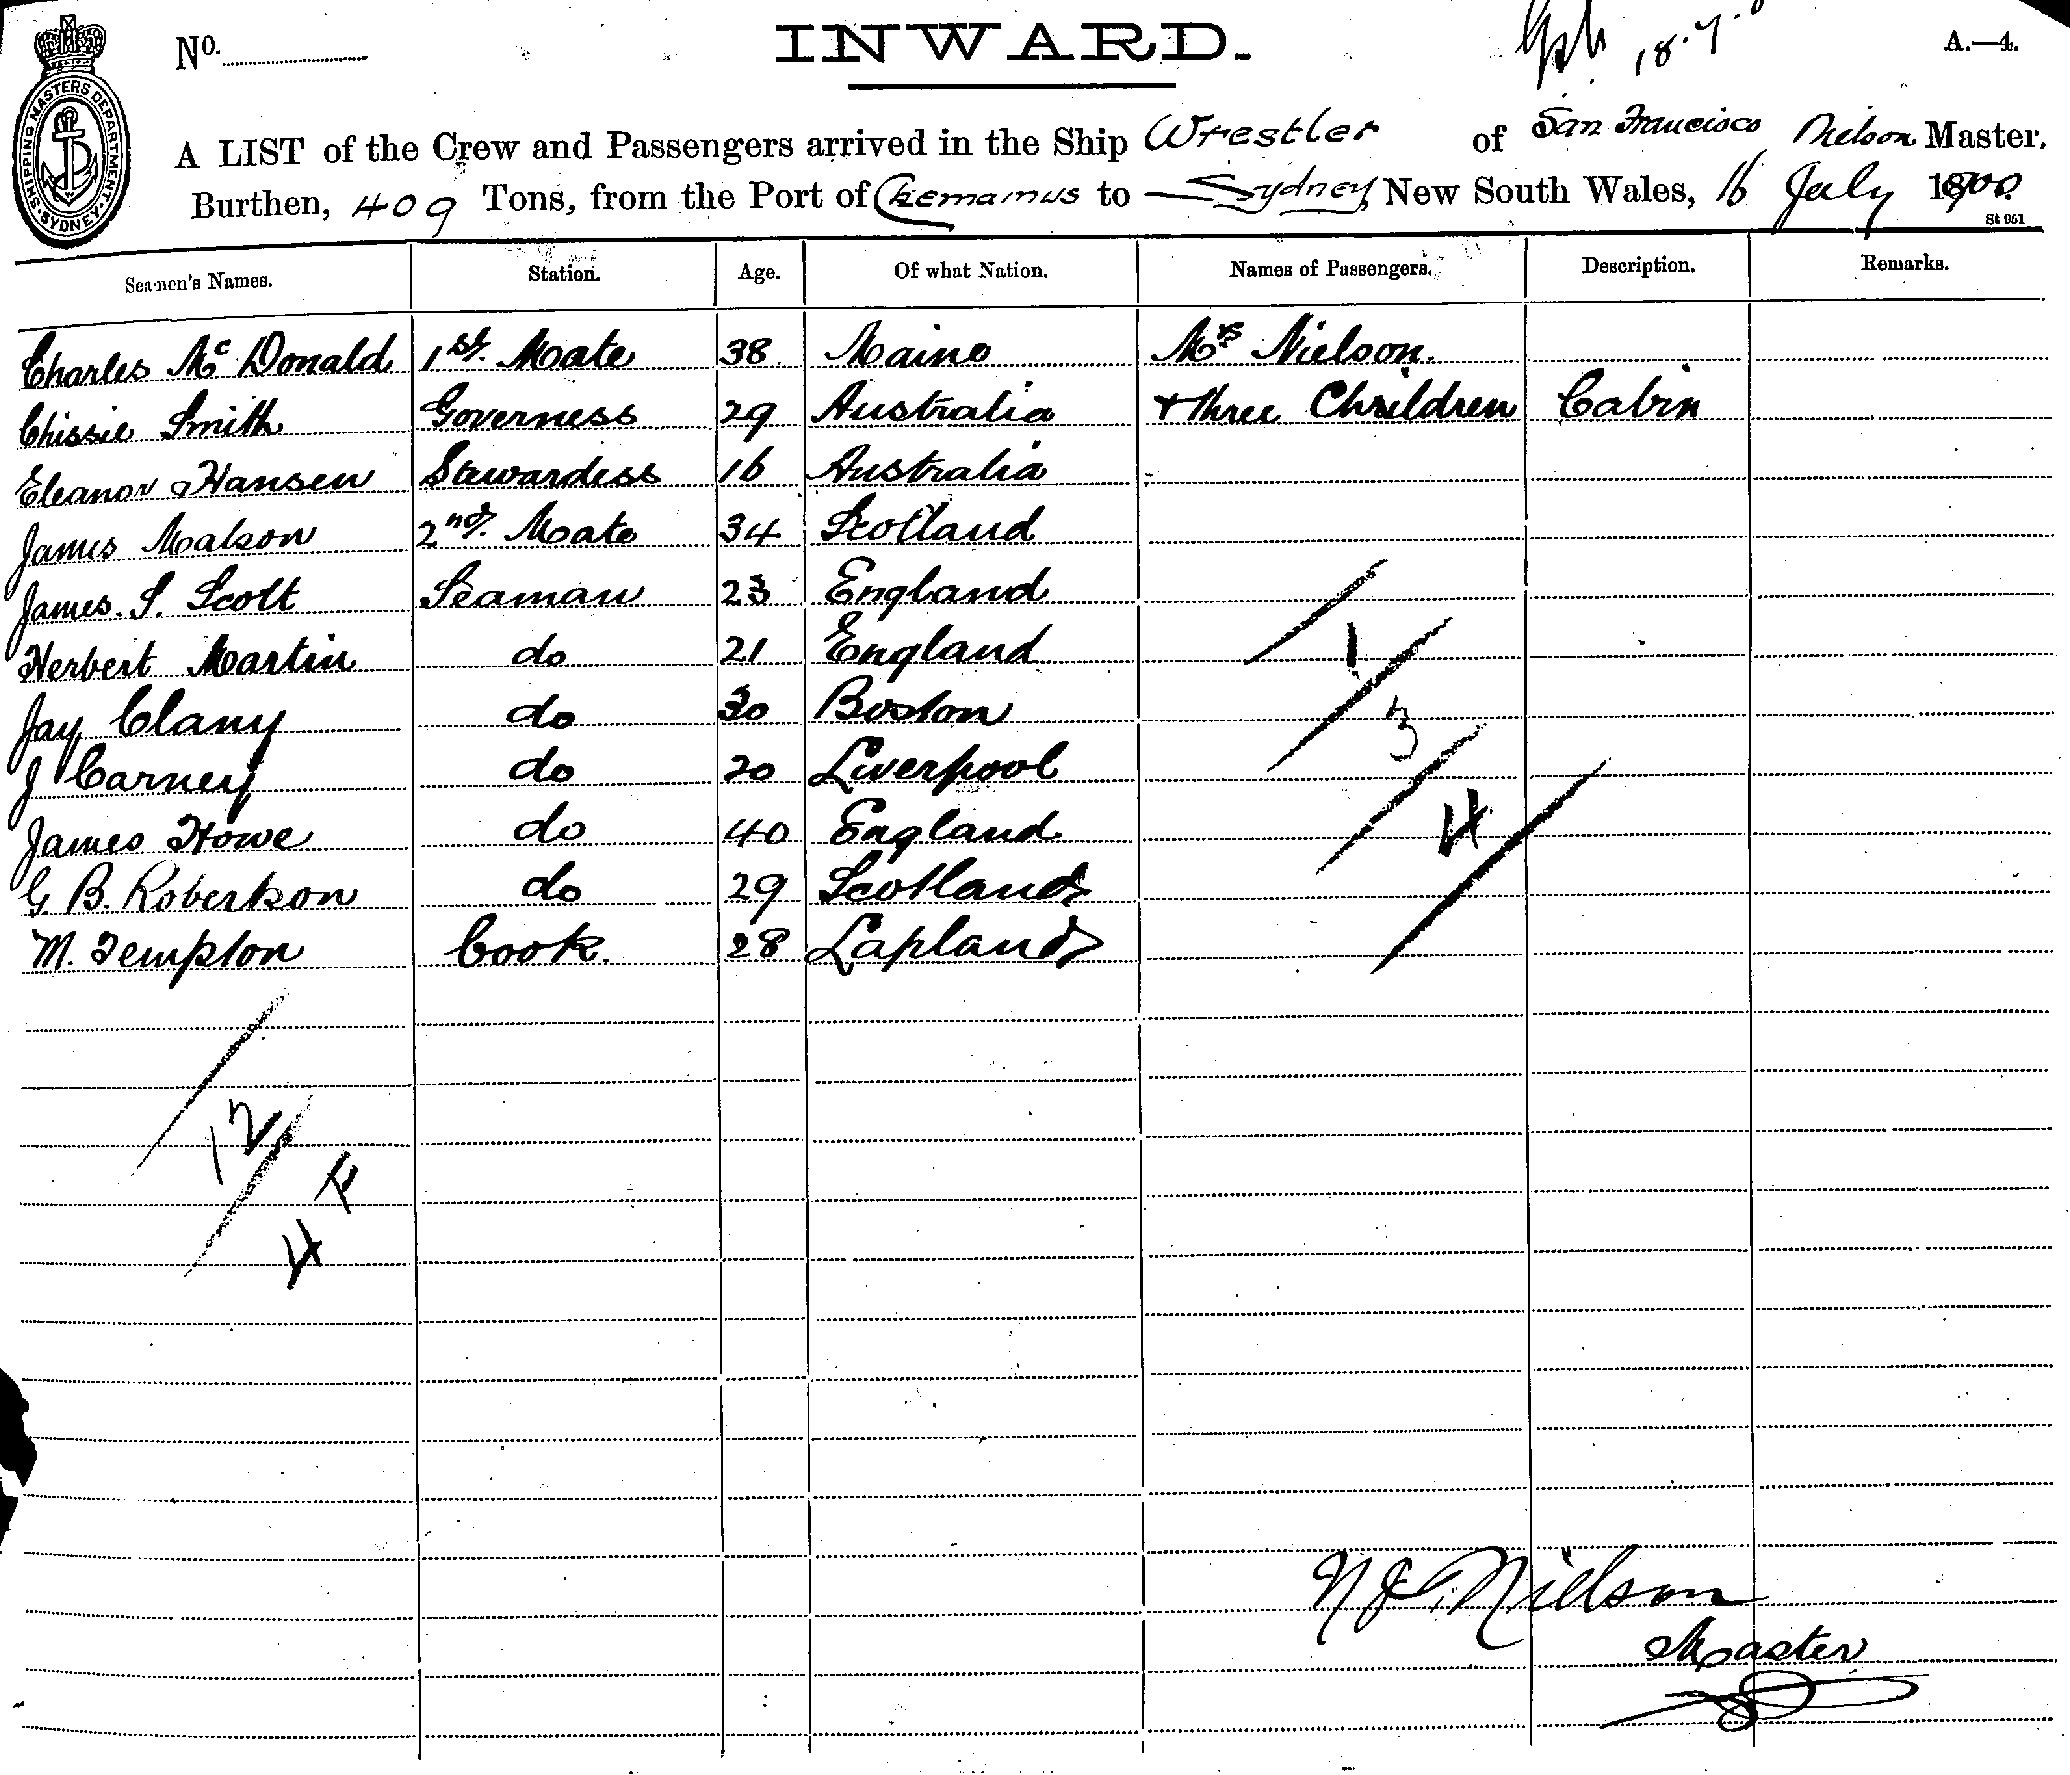 SHIPPING MASTERS DEPARTMENT. SYDNEY.
No.
INWARD.
18.7.
A.—4.
A LIST of the Crew and Passengers arrived in the Ship Wrestler of San Francisco Nielson Master.
Burthen, 409 Tons, from the Port of Chemainus to Sydney, New South Wales, 16 July 1900.
St 061
Seamen's Names. Station. Age. Of what Nation. Names of Passengers. Description. Remarks.
Charles McDonald 1st. Mate 38 Maine Mrs Nielson.
Chissie Smith Governess 29 Australia + three Chrildren Cabin
Eleanor Hansen Stewardess 16 Australia
James Matson 2nd. Mate 34 Scotland
James. S. Scott Seaman 23 England
Herbert Martin do 21 England
1
Jay Clany do 30 Boston
3
J Carney do 20 Liverpool
James Howe do 40 England
4
G. B. Robertson do 29 Scotland
M. Tempston Cook. 28 Lapland
12
4 F
Nielson
Master